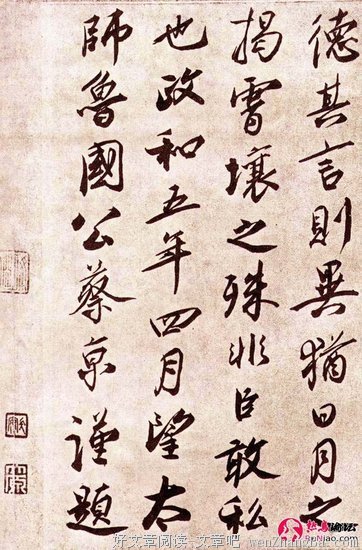 德其言則異猶日月之
揭霄壤之殊非臣敢私
也政和五年四月望太
師魯國公蔡京謹題
好文章阅读,文章吧 wenzhangba.com
ReNiao.com